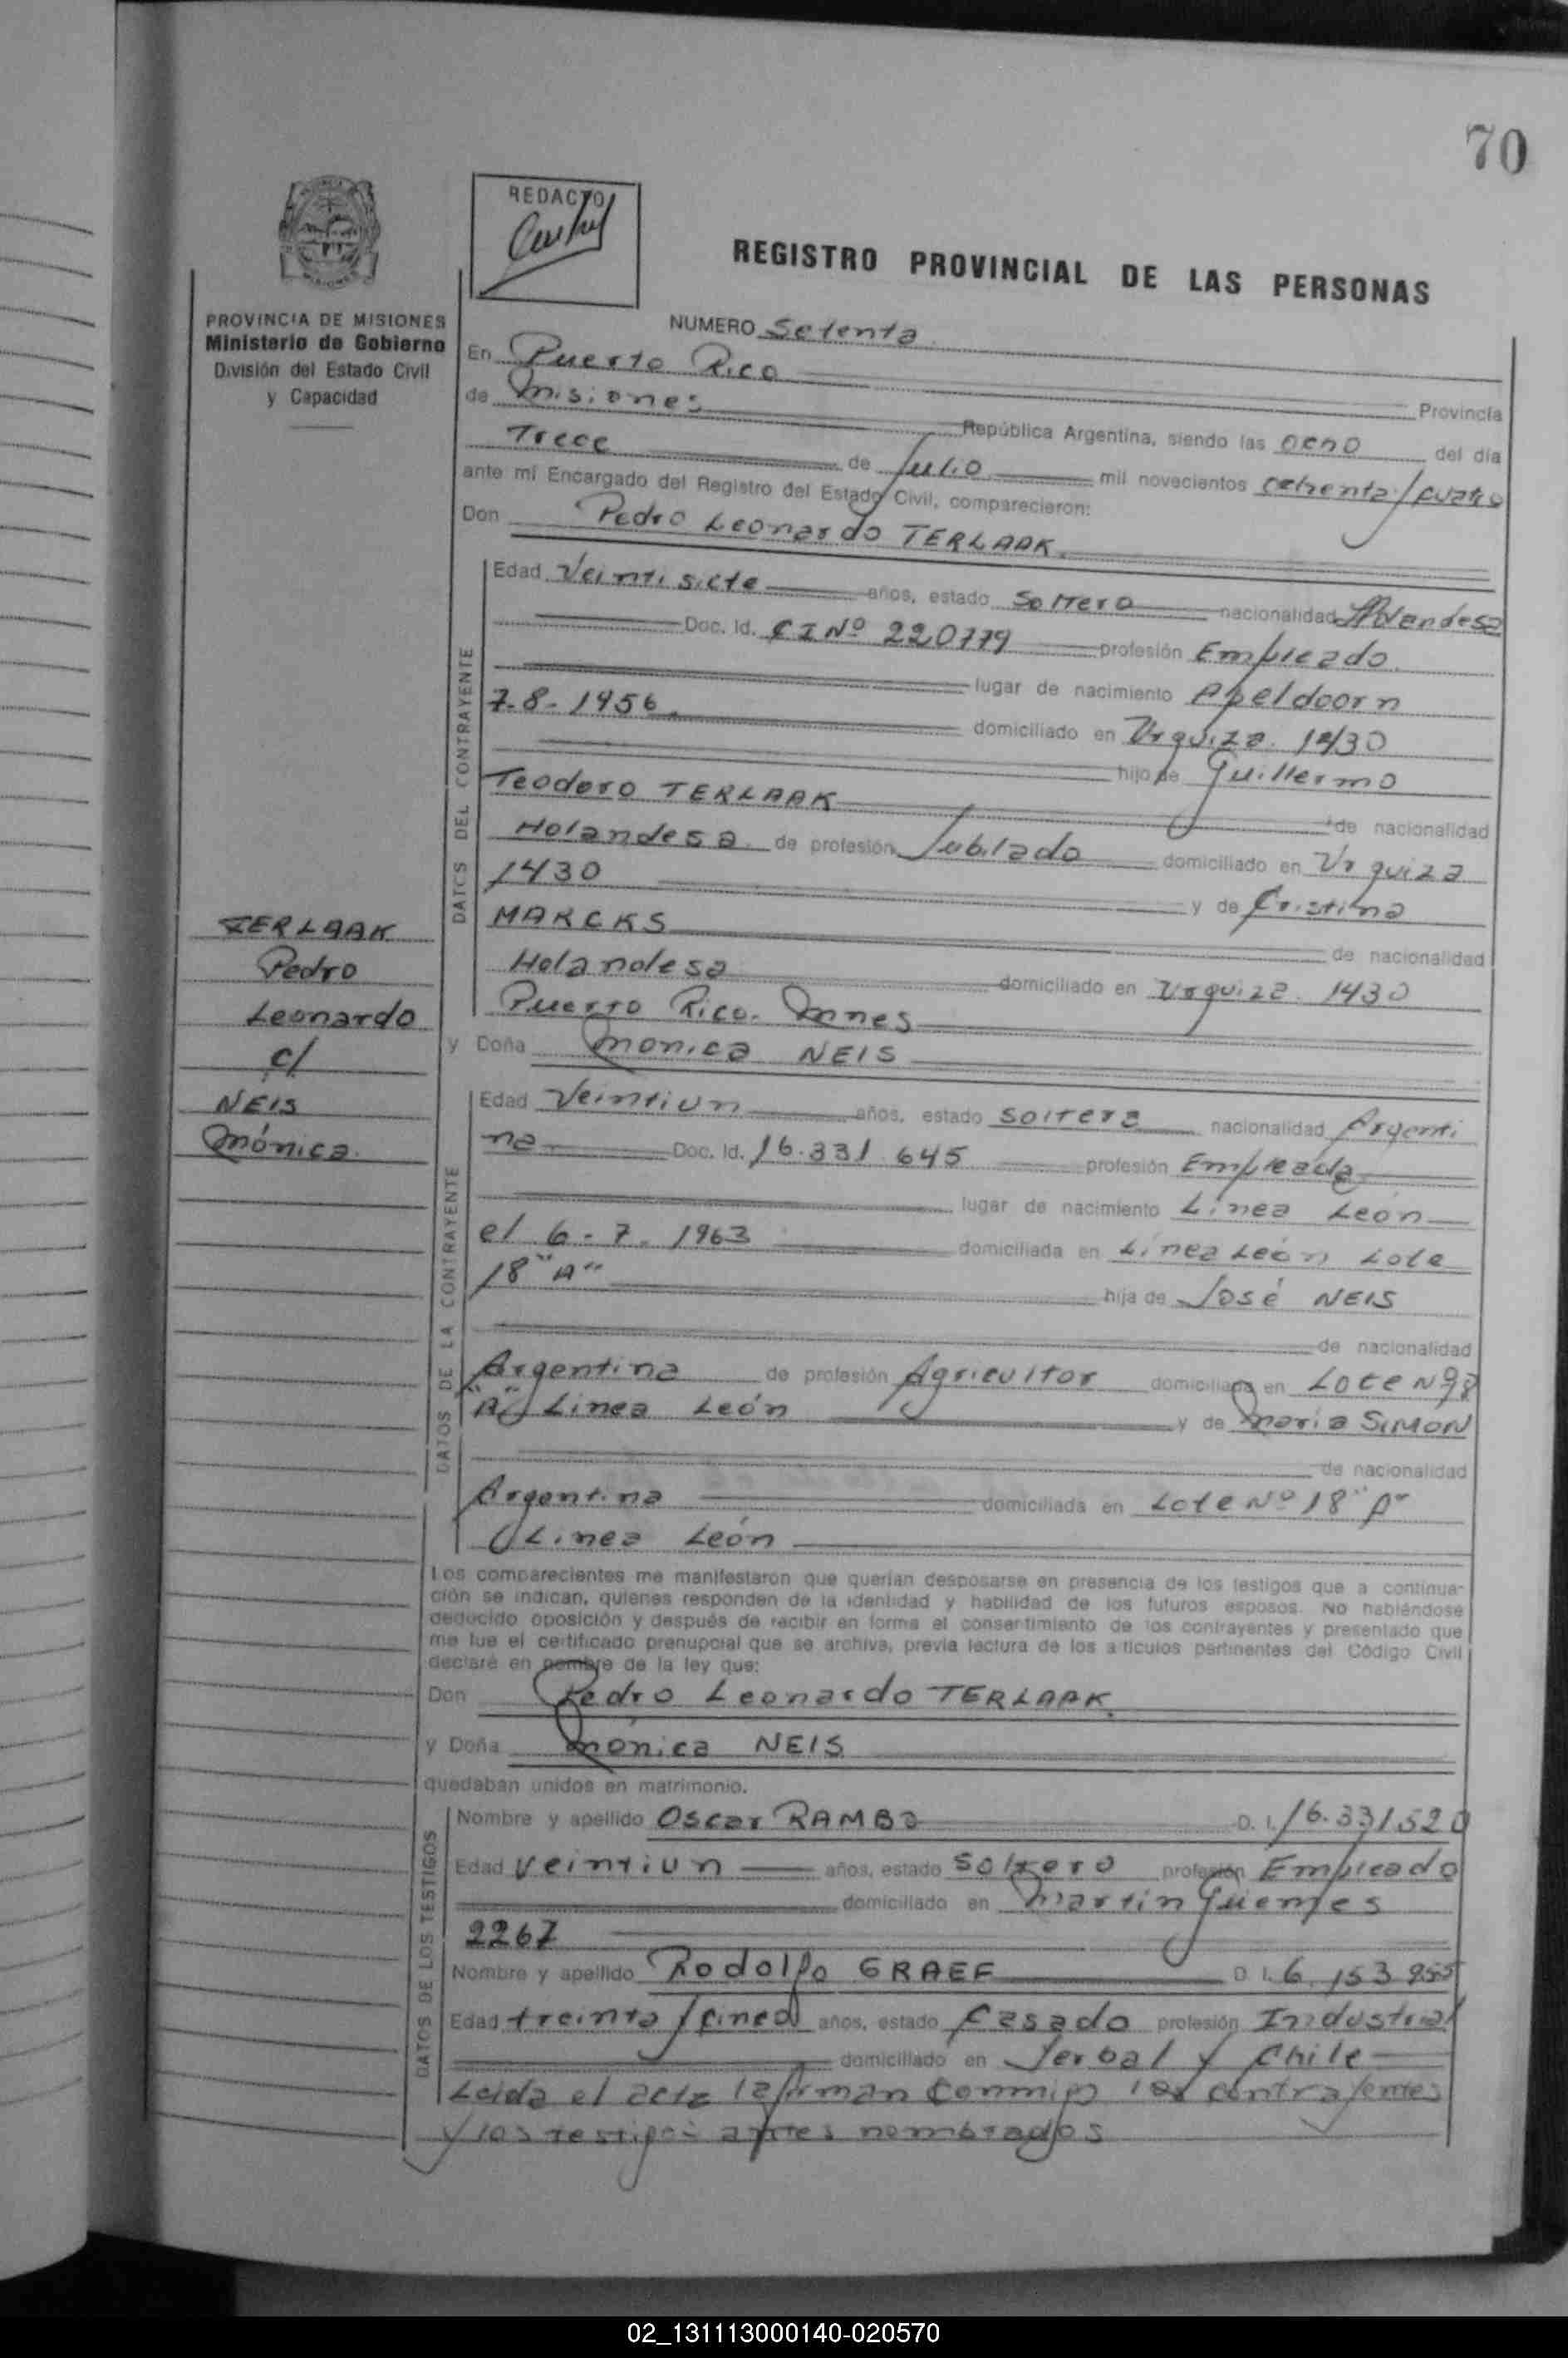 70
REDACTO
REGISTRO PROVINCIAL DE LAS PERSONAS
PROVINCIA DE MISIONES
Ministerio de Gobierno
División del Estado Civil
y Capacidad
NUMERO Setenta
En Puerto Rico
Provincia
de Misiones República Argentina, siendo las ocho del día
Trece de Julio mil novecientos ochenta y cuatro
ante mí Encargado del Registro del Estado Civil, comparecieron:
Don Pedro Leonardo TERLAAK.
DATOS DEL CONTRAYENTE
Edad Veintisiete años, estado Soltero nacionalidad Holandesa
Doc. Id. CI Nº 220779 profesión Empleado.
lugar de nacimiento Apeldoorn
7-8-1956. domiciliado en Urquiza 1430
hijo de Guillermo
Teodoro TERLAAK de nacionalidad
Holandesa de profesión Jubilado domiciliado en Urquiza
1430 y de Cristina
MARCKS de nacionalidad
Holandesa domiciliado en Urquiza 1430
Puerto Rico. Mnes
TERLAAK
Pedro
Leonardo
c/
NEIS
Mónica
y Doña Monica NEIS
DATOS DE LA CONTRAYENTE
Edad Veintiun años, estado soltera nacionalidad Argenti
na Doc. Id. 16.331.645 profesión Empleada
lugar de nacimiento Línea León
el 6-7-1963 domiciliada en Línea León Lote
18 "A" hija de José NEIS
de nacionalidad
Argentina de profesión Agricultor domiciliado en Lote Nº 18
"A" Linea León y de Maria SIMON
de nacionalidad
Argentina domiciliada en Lote Nº 18 "A"
Linea León
Los comparecientes me manifestaron que querían desposarse en presencia de los testigos que a continua-
ción se indican, quienes responden de la identidad y habilidad de los futuros esposos. No habiéndose
deducido oposición y después de recibir en forma el consentimiento de los contrayentes y presentado que
me fue el certificado prenupcial que se archiva, previa lectura de los artículos pertinentes del Código Civil
declaré en nombre de la ley que:
Don Pedro Leonardo TERLAAK.
y Doña Mónica NEIS
quedaban unidos en matrimonio.
DATOS DE LOS TESTIGOS
Nombre y apellido Oscar RAMBO D. I. 16.331520
Edad Veintiun años, estado Soltero profesión Empleado
domiciliado en Martin Güemes
2267
Nombre y apellido Rodolfo GRAEF D. I. 6.153955
Edad treinta y cinco años, estado Casado profesión Industrial
domiciliado en Yerbal y Chile
Leida el acta la firman conmigo los contrayentes
y los testigos antes nombrados
02_131113000140-020570